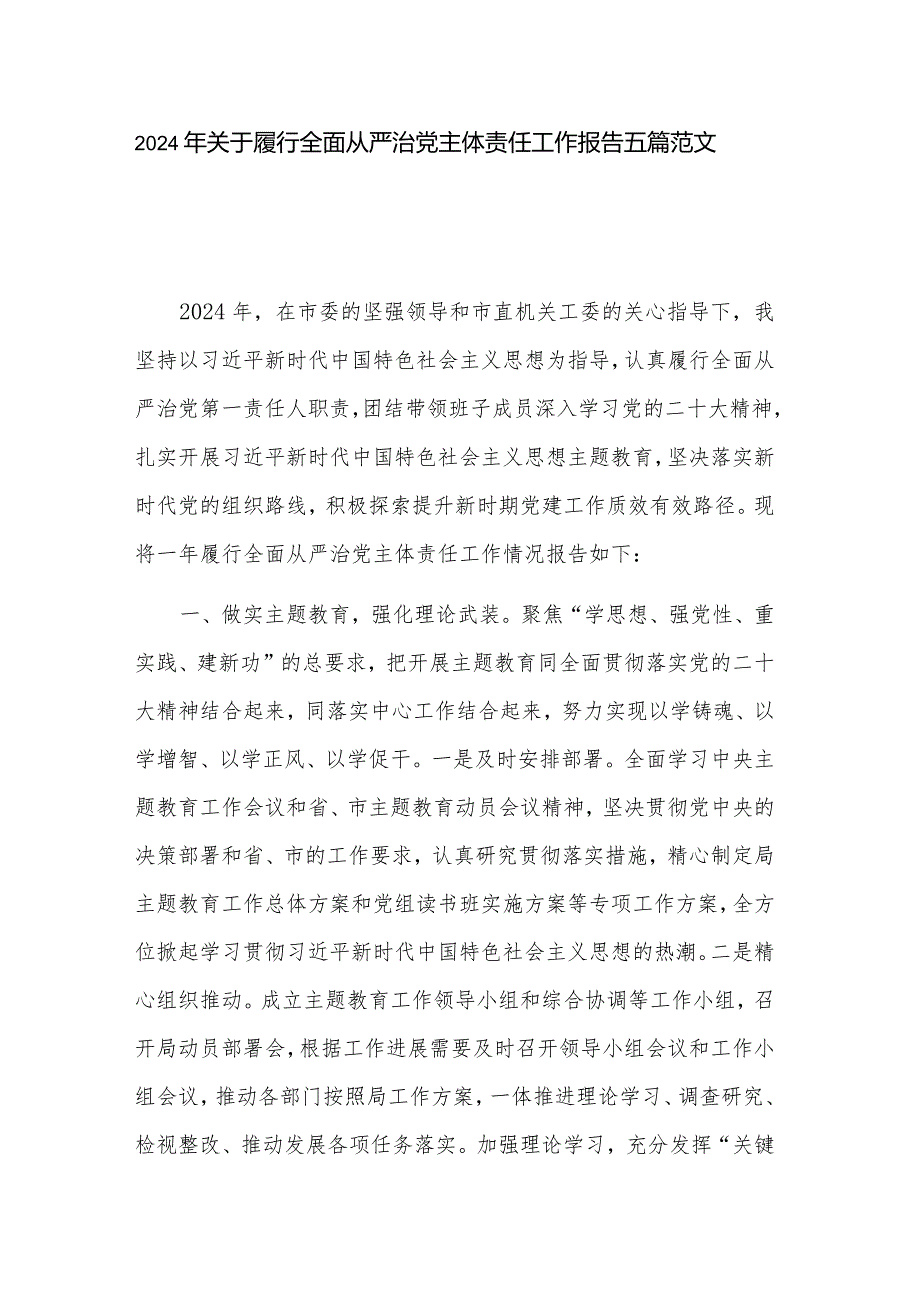 2024年关于履行全面从严治党主体责任工作报告五篇范文
2024年，在市委的坚强领导和市直机关工委的关心指导下，我
坚持以习近平新时代中国特色社会主义思想为指导，认真履行全面从
严治党第一责任人职责，团结带领班子成员深入学习党的二十大精神，
扎实开展习近平新时代中国特色社会主义思想主题教育，坚决落实新
时代党的组织路线，积极探索提升新时期党建工作质效有效路径。现
将一年履行全面从严治党主体责任工作情况报告如下：
一、做实主题教育，强化理论武装。聚焦“学思想、强党性、重
实践、建新功”的总要求，把开展主题教育同全面贯彻落实党的二十
大精神结合起来，同落实中心工作结合起来，努力实现以学铸魂、以
学增智、以学正风、以学促干。一是及时安排部署。全面学习中央主
题教育工作会议和省、市主题教育动员会议精神，坚决贯彻党中央的
决策部署和省、市的工作要求，认真研究贯彻落实措施，精心制定局
主题教育工作总体方案和党组读书班实施方案等专项工作方案，全方
位掀起学习贯彻习近平新时代中国特色社会主义思想的热潮。二是精
心组织推动。成立主题教育工作领导小组和综合协调等工作小组，召
开局动员部署会，根据工作进展需要及时召开领导小组会议和工作小
组会议，推动各部门按照局工作方案，一体推进理论学习、调查研究、
检视整改、推动发展各项任务落实。加强理论学习，充分发挥“关键